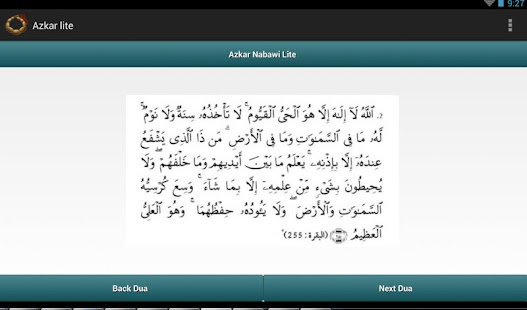 9:27
Azkar lite
Azkar Nabawi Lite
2. ٱللَّهُ لَآ إِلَٰهَ إِلَّا هُوَ ٱلْحَىُّ ٱلْقَيُّومُ ۚ لَا تَأْخُذُهُۥ سِنَةٌ وَلَا نَوْمٌ ۚ
لَّهُۥ مَا فِى ٱلسَّمَٰوَٰتِ وَمَا فِى ٱلْأَرْضِ ۗ مَن ذَا ٱلَّذِى يَشْفَعُ
عِندَهُۥٓ إِلَّا بِإِذْنِهِۦ ۚ يَعْلَمُ مَا بَيْنَ أَيْدِيهِمْ وَمَا خَلْفَهُمْ ۖ وَلَا
يُحِيطُونَ بِشَىْءٍ مِّنْ عِلْمِهِۦٓ إِلَّا بِمَا شَآءَ ۚ وَسِعَ كُرْسِيُّهُ
ٱلسَّمَٰوَٰتِ وَٱلْأَرْضَ ۖ وَلَا يَـُٔودُهُۥ حِفْظُهُمَا ۚ وَهُوَ ٱلْعَلِىُّ
ٱلْعَظِيمُ (البقرة: 255)
Back Dua
Next Dua